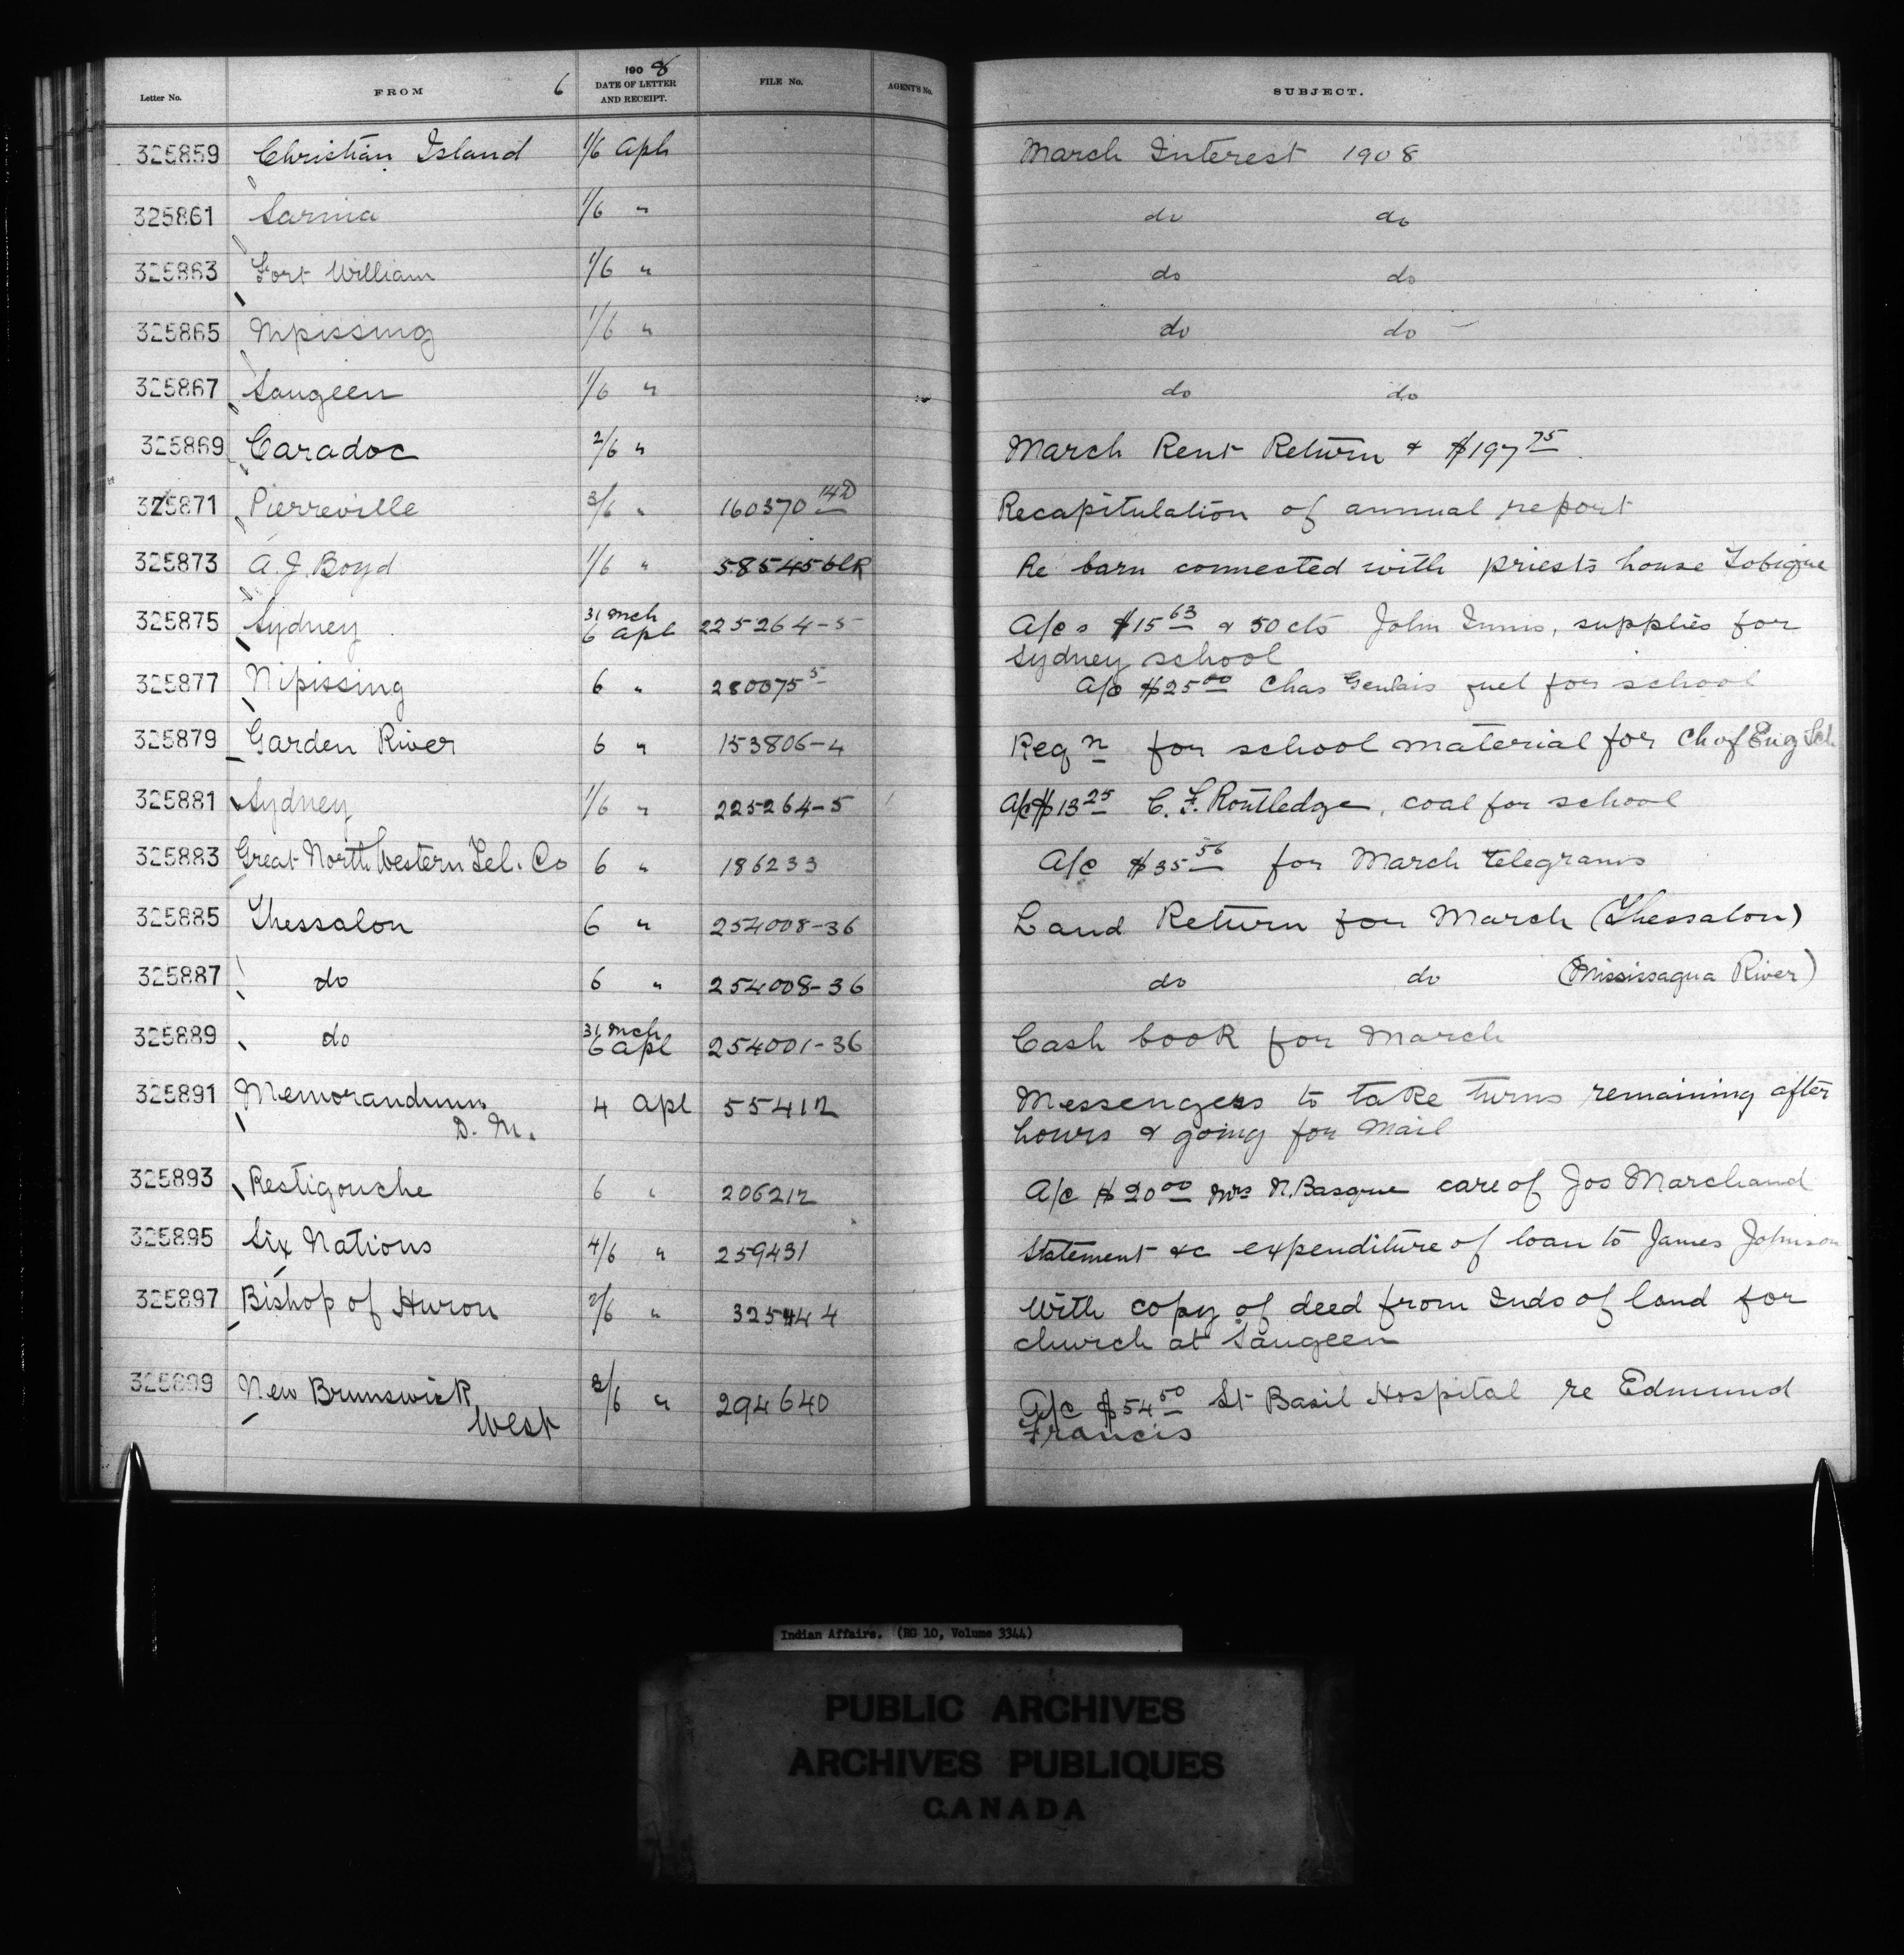 Letter No. FROM 6 1908 DATE OF LETTER AND RECEIPT. FILE No. AGENT'S No. SUBJECT.
325859 Christian Island 1/6 Apl March Interest 1908
325861 Sarnia 1/6 " do do
325863 Fort William 1/6 " do do
325865 Nipissing 1/6 " do do
325867 Saugeen 1/6 " do do
325869 Caradoc 2/6 " March Rent Return & $197 75
325871 Pierreville 3/6 " 160370 14D Recapitulation of annual report
325873 A. J. Boyd 1/6 " Re barn connected with priests house Tobique
325875 Sydney 31 Mch 6 Apl 225264-5 A/cs $15 63 & 50 cts John Innis, supplies for
Sydney school
325877 Nipissing 6 " 280075 5 A/c $25 00 Chas fuel for school
325879 Garden River 6 " 153806-4 Reqn for school material for Ch of Eng Sch
325881 Sydney 1/6 " 225264-5 A/c $13 25 C. F. Routledge, coal for school
325883 Great North Western Tel. Co 6 " 186233 A/c $35 56 for March telegrams
325885 Thessalon 6 " 254008-36 Land Return for March (Thessalon)
325887 do 6 " 254008-36 do do (Mississagua River)
325889 do 31 Mch 6 Apl 254001-36 Cash book for March
325891 Memorandum 4 Apl 55412 Messengers to take turns remaining after
D. M. hours & going for mail
325893 Restigouche 6 " 206212 A/c $20 00 Mrs N. Basque care of Jos Marchand
325895 Six Nations 4/6 " 259431 Statement &c expenditure of loan to James Johnson
325897 Bishop of Huron 2/6 " 325444 With copy of deed from Inds of land for
church at Saugeen
325899 New Brunswick 3/6 " 294640 A/c $54 50 St Basil Hospital re Edmund
West Francis
Indian Affairs. (RG 10, Volume 3344)
PUBLIC ARCHIVES
ARCHIVES PUBLIQUES
CANADA